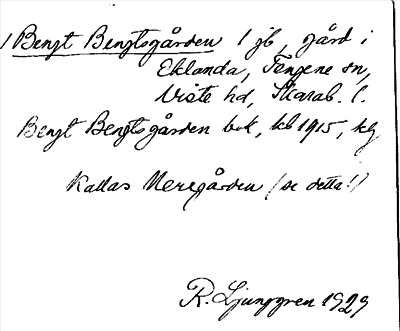 /Bengt Bengtsgården 1 jb, gård i
Eklanda, Tengene sn,
Viste hd, Skarab. l.
Bengt Bengtsgården bok, kb 1915, klg
Kallas Neregården (se detta!)
R. Ljunggren 1929